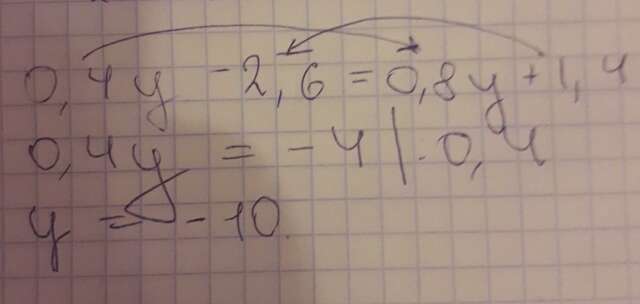 0,4y - 2,6 = 0,8y + 1,4
0,4y = -4 | · 0,4
y = -10.